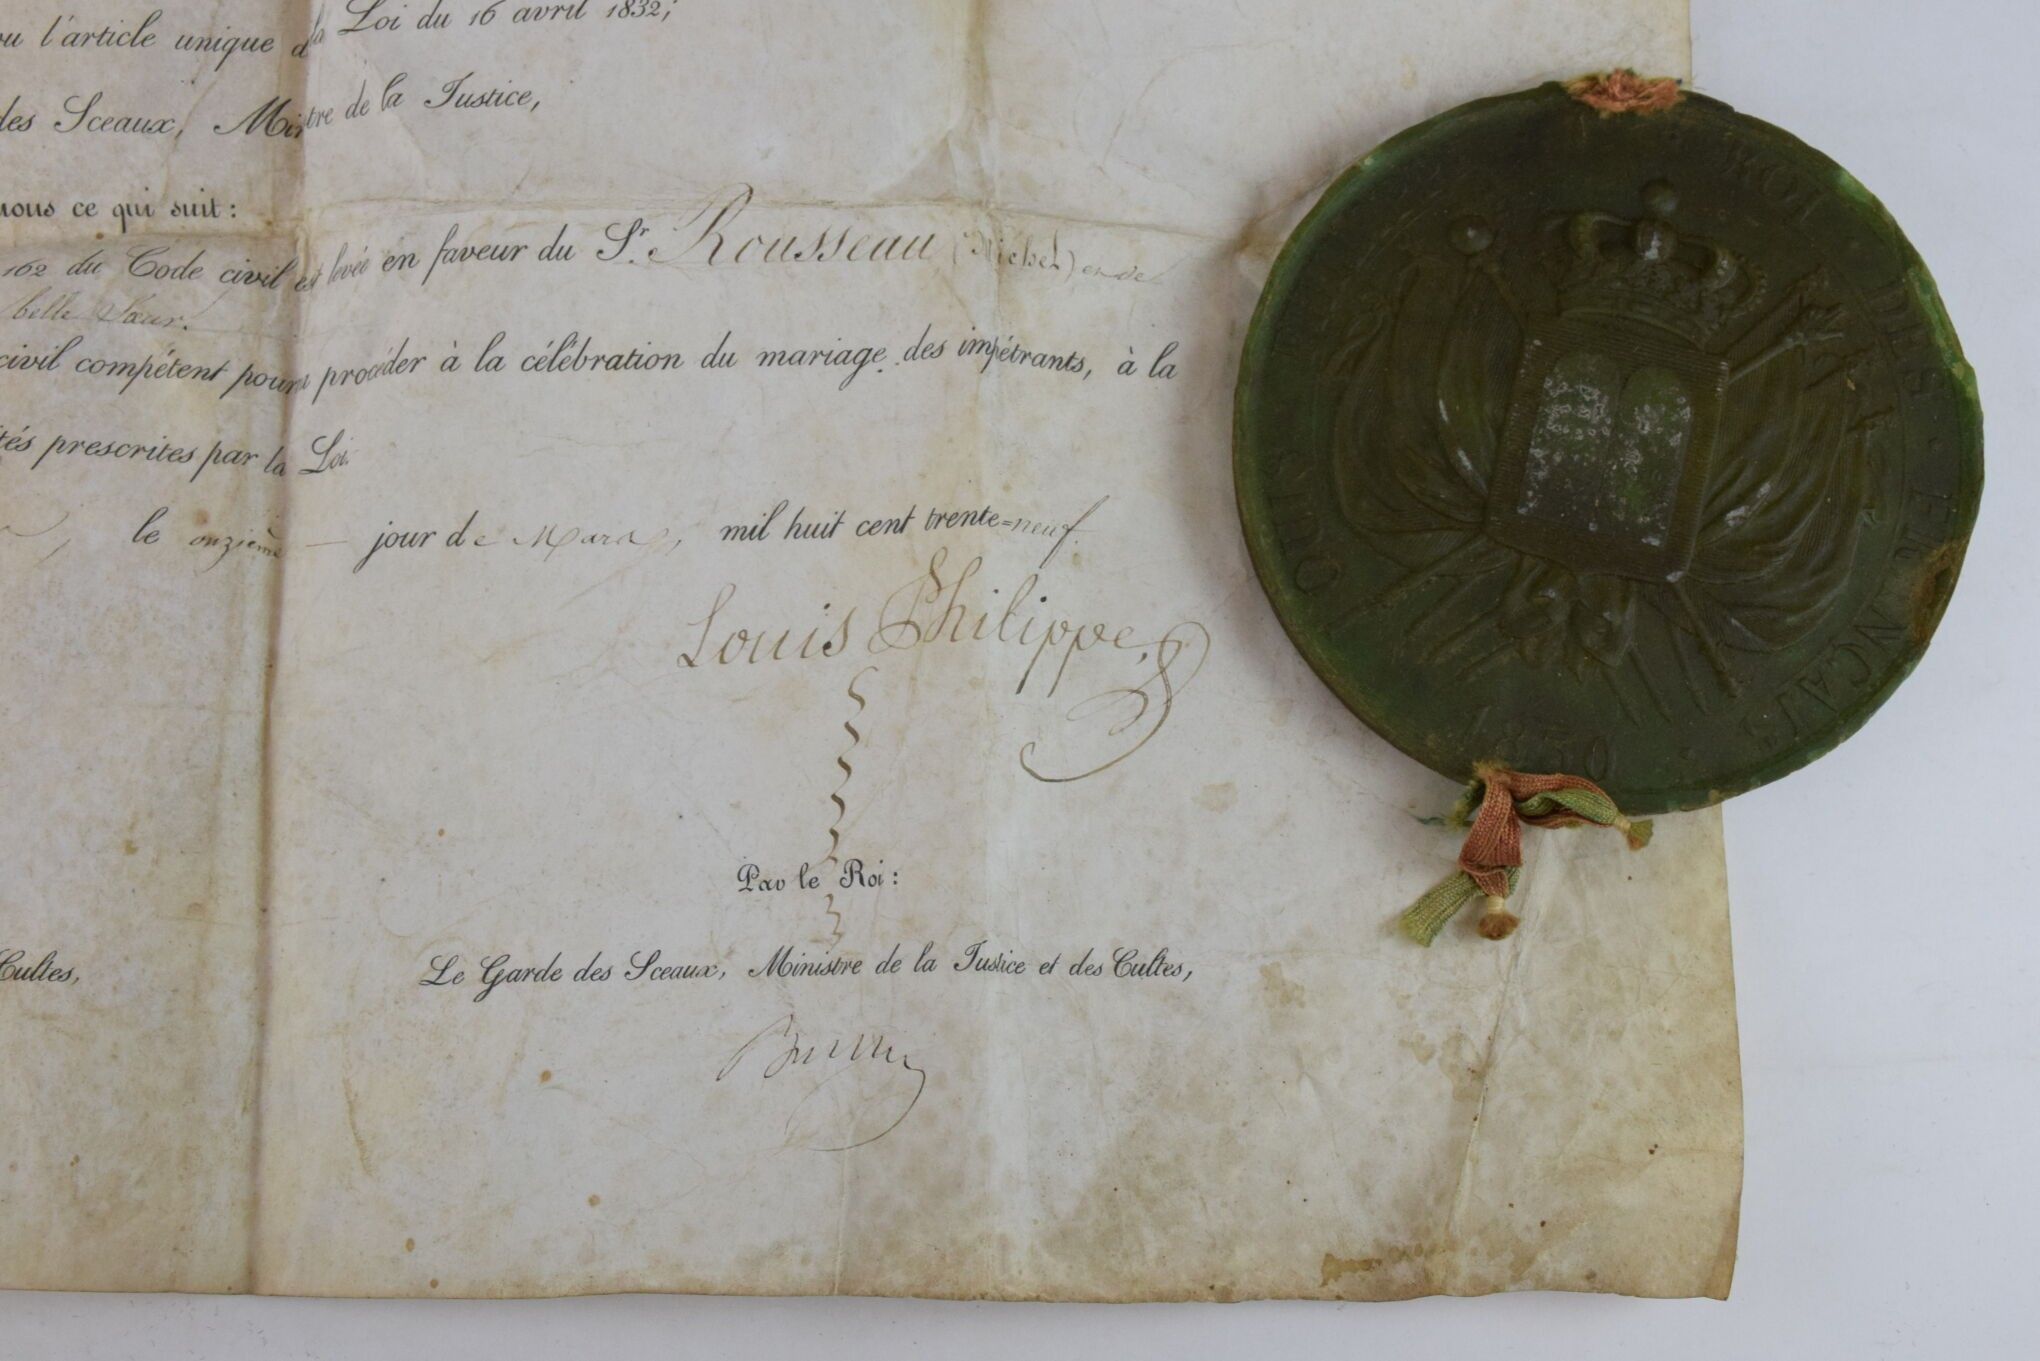 l'article unique de la Loi du 16 avril 1832;
des Sceaux, Ministre de la Justice,
nous ce qui suit:
162 du Code civil est levée en faveur du Sr. Rousseau (Michel) et de
belle Sœur.
civil compétent pourra procéder à la célébration du mariage des impétrants, à la
tés prescrites par la Loi.
le onzième jour de Mars, mil huit cent trente=neuf.
Louis Philippe
Par le Roi:
Cultes,
Le Garde des Sceaux, Ministre de la Justice et des Cultes,
ROI DES FRANÇAIS
1830